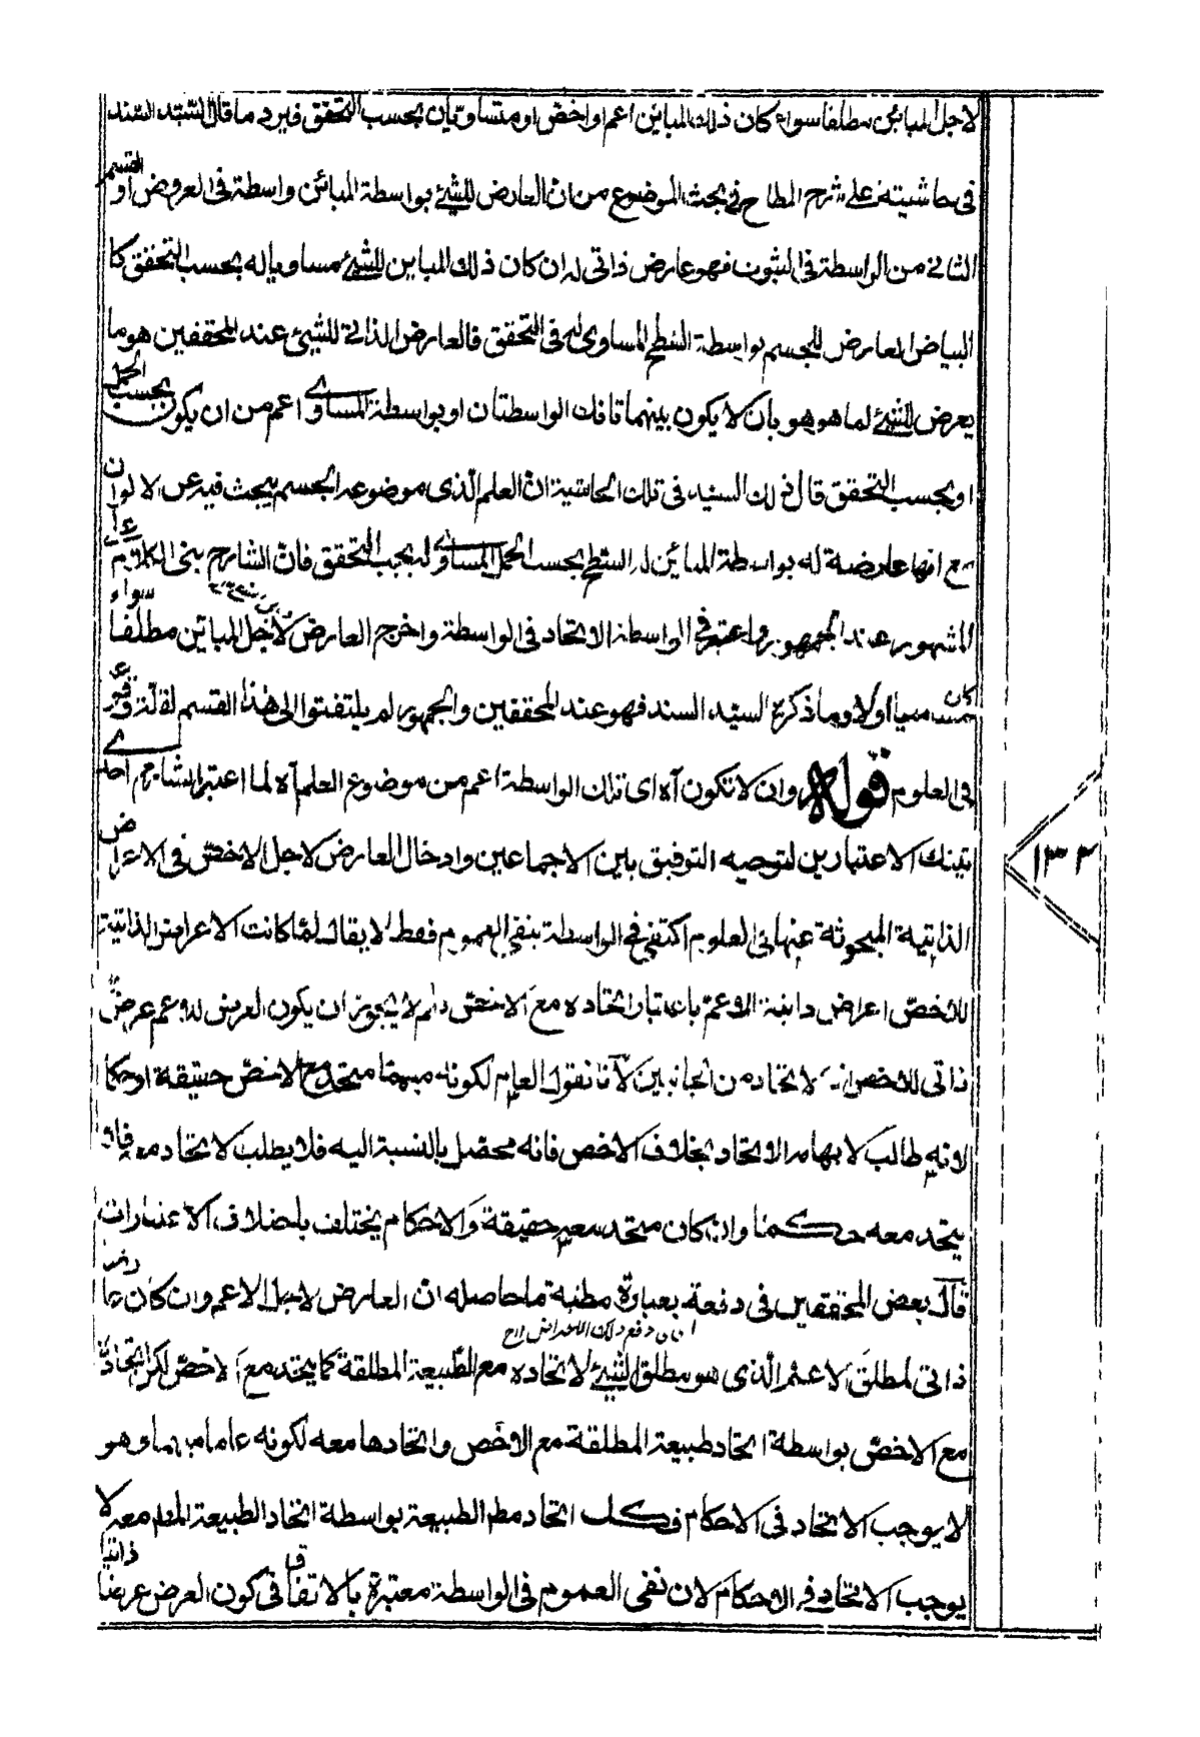 لاجل المبائن مطلقا سواء كان ذلك المبائن اعم او اخص او متساويان بحسب التحقق فيرد ما قال السيد السند
فى حاشيته على شرح المطالع فى بحث الموضوع من ان العارض للشيئ بواسطة المبائن واسطة فى العروض او القسم
الثانى من الواسطة فى الثبوت فهو عارض ذاتى له ان كان ذلك المباين للشيئ مساويا له بحسب التحقق كا
البياض العارض للجسم بواسطة السطح المساوى له فى التحقق فالعارض الذاتى للشيئ عند المحققين هو ما
يعرض للشيئ لما هو هو بان لا يكون بينهما تانك الواسطتان او بواسطة المساوى اعم من ان يكون بحسب الحمل
او بحسب التحقق قال ذلك السيد فى تلك الحاشية ان العلم الذى موضوعه الجسم يبحث فيه عن الالوان
مع انها عارضة له بواسطة المبائن له السطح بحسب الحمل المساوى له بحسب التحقق فان الشارح بنى الكلام على
المشهور عند الجمهور واعتبر فى الواسطة الاتحاد فى الواسطة واخرج العارض لاجل المباين مطلقا سواء
كان مساويا او لا وما ذكره السيد السند فهو عند المحققين والجمهور لم يلتفتوا الى هذا القسم لقلة وقوعه
فى العلوم قوله وان لا تكون آه اى تلك الواسطة اعم من موضوع العلم آه لما اعتبر الشارح احد
تينك الاعتبارين لتوجيه التوفيق بين الاجماعين وادخال العارض لاجل الاخص فى الاعراض
الذاتية المبحوثة عنها فى العلوم اكتفى فى الواسطة بنفى العموم فقط لا يقال لما كانت الاعراض الذاتية
للاخص اعراض ذاتية للاعم باعتبار اتحاده مع الاخص فلم لا يجوز ان يكون العرض للاعم عرض
ذاتى للاخص اذ الاتحاد من الجانبين لانا نقول العام لكونه مبهما متحد مع الاخص حقيقة او حكما
لانه طالب لابهامه الاتحاد بخلاف الاخص فانه محصل بالنسبة اليه فلا يطلب الاتحاد معه فلا
يتحد معه حكما وان كان متحد معه حقيقة والاحكام يختلف باختلاف الاعتبارات
قال بعض المحققين فى دفعه بعبارة مطنبة ما حاصله ان العارض لاجل الاعم وان كان عارض
اى فى دفع ذلك الاعتراض ١٢ ح
ذاتى لمطلق الاعم الذى هو مطلق الشيئ لاتحاده مع الطبيعة المطلقة كما يتحد مع الاخص لكن اتحاده
مع الاخص بواسطة اتحاد طبيعة المطلقة مع الاخص واتحادها معه لكونه عاما مبهما وهو
لا يوجب الاتحاد فى الاحكام فكذلك اتحاد مطلق الطبيعة بواسطة اتحاد الطبيعة المطلقة معه لا
يوجب الاتحاد فى الاحكام لان نفى العموم فى الواسطة معتبرة بالاتفاق فى كون العرض عرضا ذاتيا